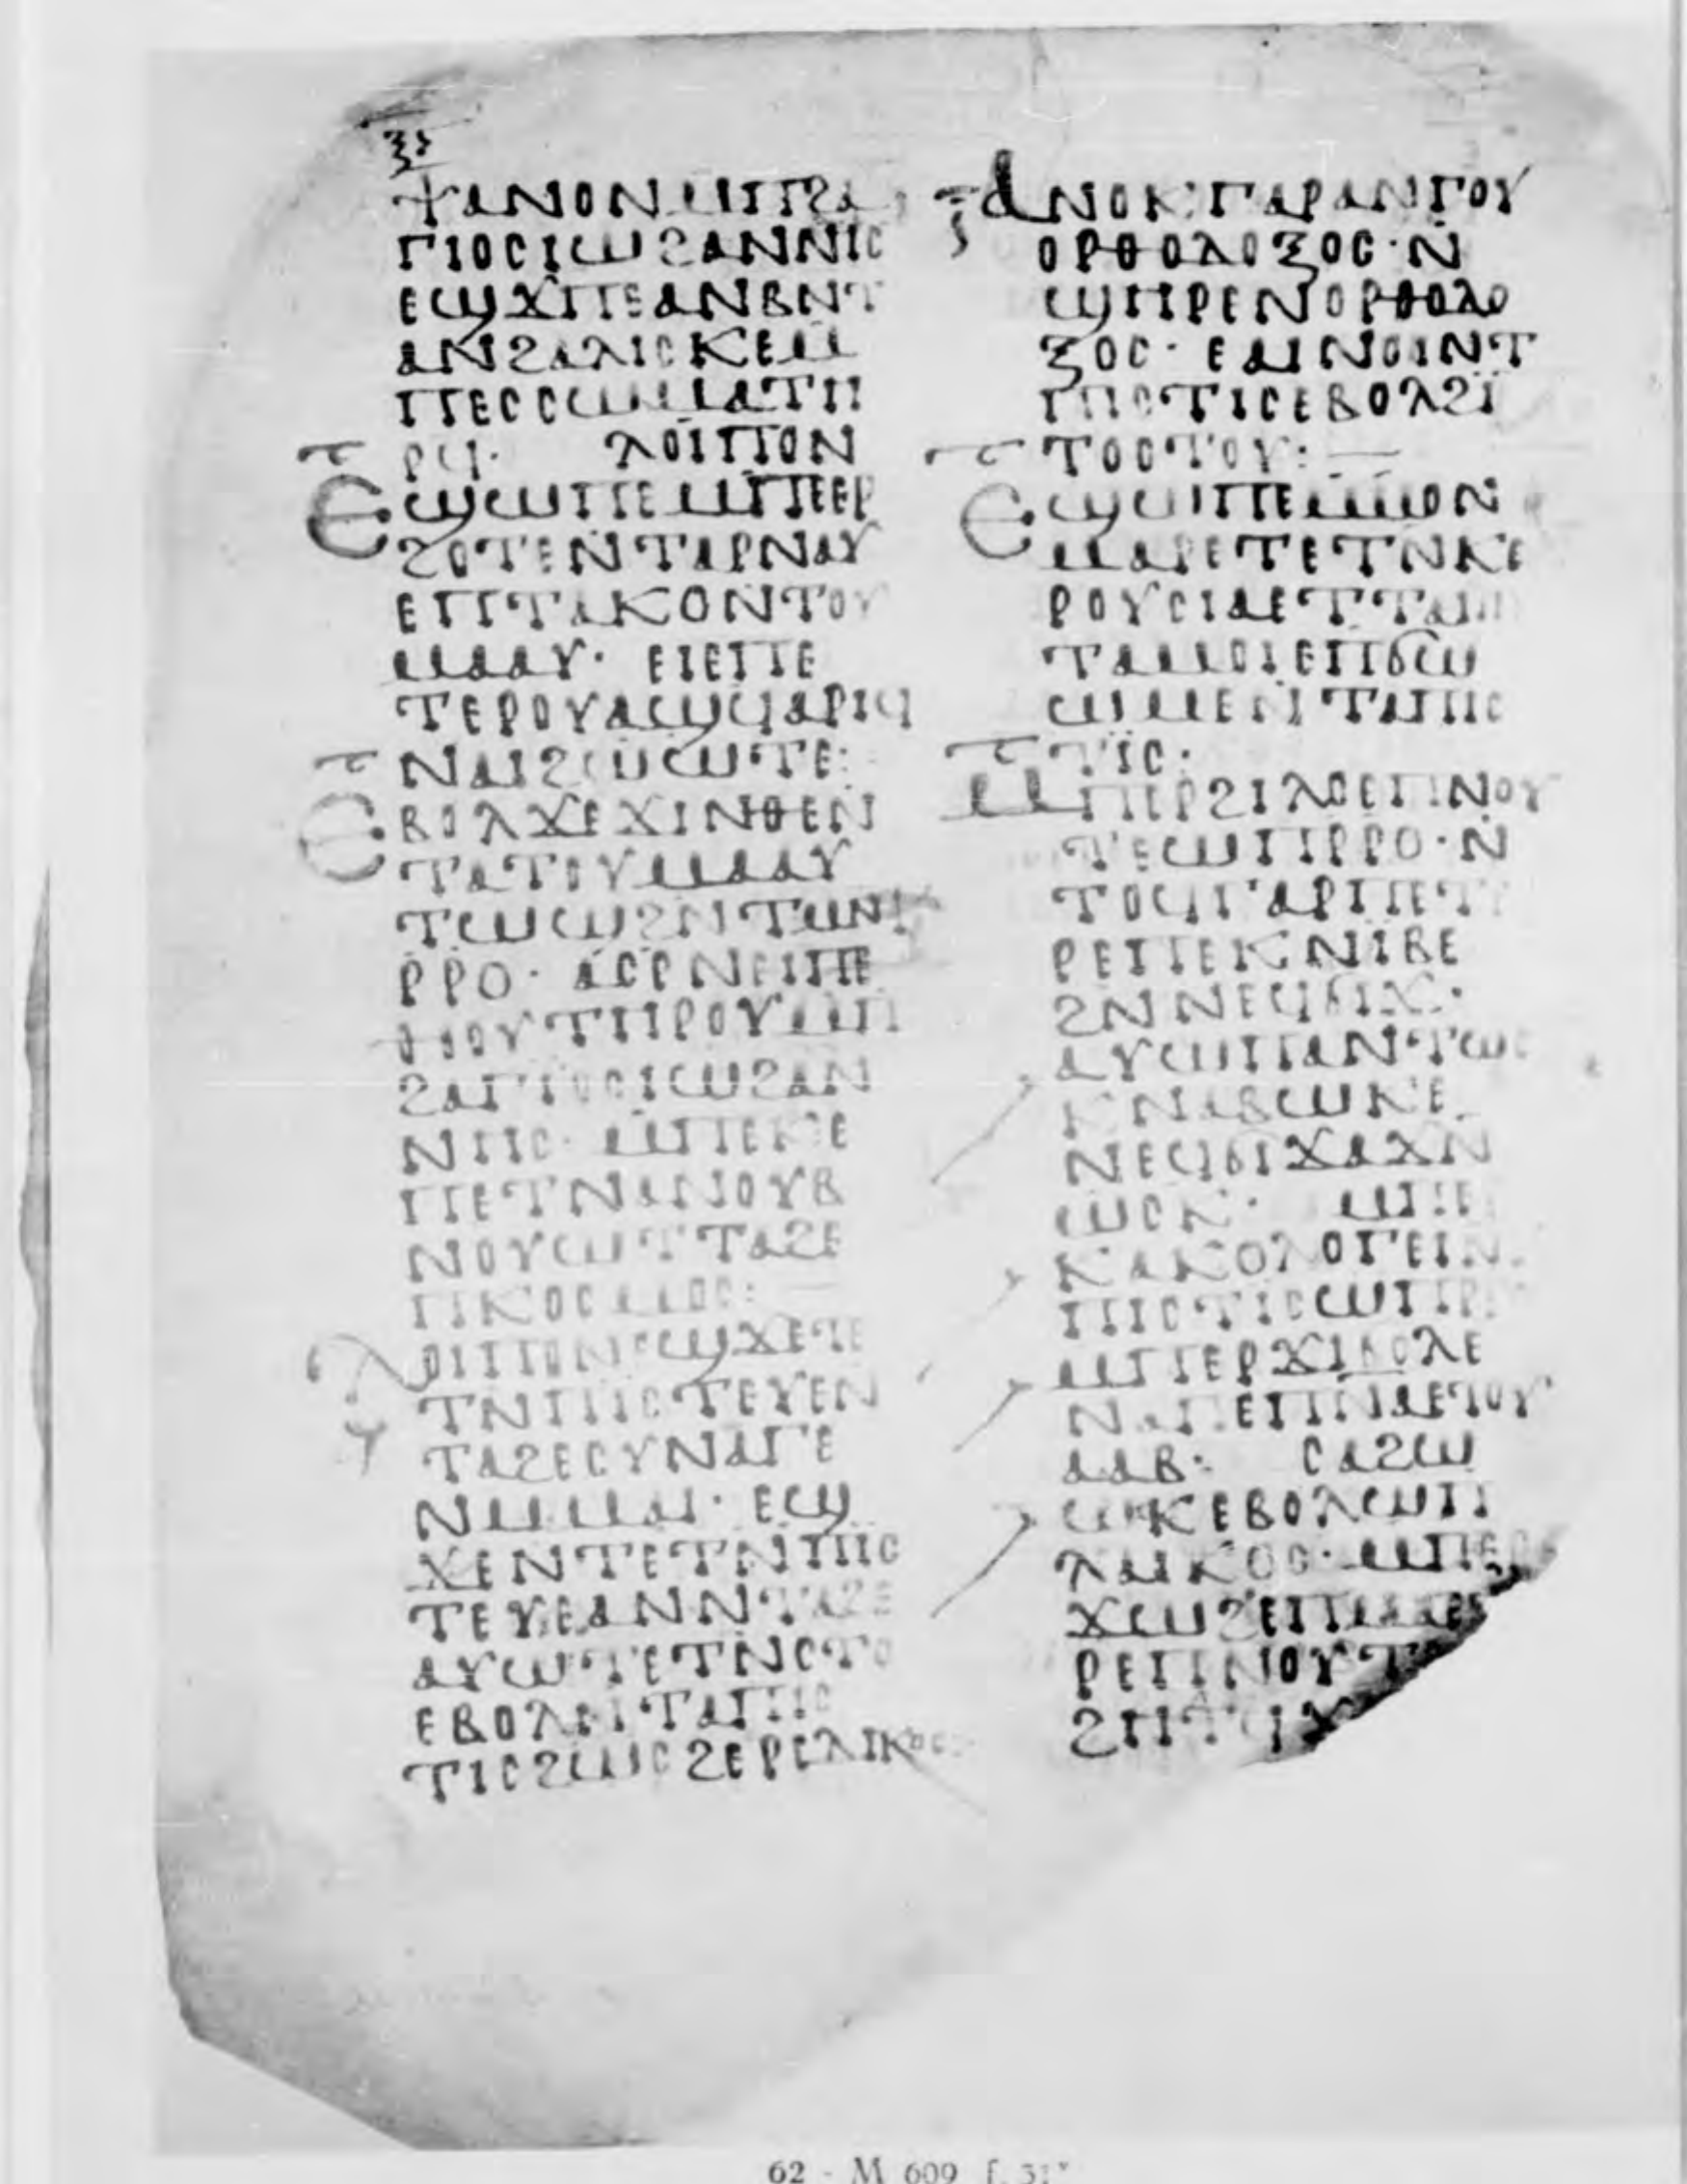 ⲝⲃ
ϯⲁⲛⲟⲛ ⲙⲡϩⲁ
ⲅⲓⲟⲥ ⲓⲱϩⲁⲛⲛⲏⲥ
ⲉϣϫⲡⲉ ⲁⲛⲃⲛⲧ
ⲁⲛϩⲁⲗⲓⲥⲕⲉ ⲙ
ⲡⲉⲥⲥⲱⲙⲁ ⲧⲏ
ⲣϥ· ⲗⲟⲓⲡⲟⲛ
Ⲉϣⲱⲡⲉ ⲙⲡⲉⲉⲣ
ϩⲟⲧⲉ ⲛⲧⲁⲣⲛⲁⲩ
ⲉⲡⲧⲁⲕⲟ ⲛⲧⲟⲩ
ⲙⲁⲁⲩ· ⲉⲓⲉ ⲡⲉ
ⲧⲉⲣⲟⲩⲁϣϥ ⲁⲣⲓϥ
ⲛⲁⲓ ϩⲱⲱⲧⲉ:
Ⲉⲃⲟⲗ ϫⲉ ϫⲓⲛ ⲑⲉ ⲛ
ⲧⲁ ⲧⲟⲩⲙⲁⲁⲩ
ⲧⲱⲱϩ ⲛ ⲧⲙⲛⲧ
ⲣⲣⲟ· ⲁⲥⲣ ⲛⲉⲓⲡⲉ
ⲑⲟⲟⲩ ⲧⲏⲣⲟⲩ ⲙⲡ
ϩⲁⲅⲓⲟⲥ ⲓⲱϩⲁⲛ
ⲛⲏⲥ· ⲙⲡⲉⲕⲉ
ⲡⲉⲧⲛⲁⲛⲟⲩϥ
ⲛⲟⲩⲱⲧ ⲧⲁϩⲉ
ⲡⲕⲟⲥⲙⲟⲥ:
Ⲗⲟⲓⲡⲟⲛ ⲉϣϫⲉ ⲧⲉ
ⲧⲛⲡⲓⲥⲧⲉⲩⲉ ⲛ
ⲧⲁϩⲉ ⲥⲩⲛⲁⲅⲉ
ⲛⲙⲙⲁⲓ· ⲉϣ
ϫⲉ ⲛⲧⲉⲧⲛⲡⲓⲥ
ⲧⲉⲩⲉ ⲁⲛ ⲛⲧⲁϩⲉ
ⲁⲩⲱ ⲧⲉⲧⲛⲥⲧⲟ
ⲉⲃⲟⲗ ⲛⲧⲁⲡⲓⲥ
ⲧⲓⲥ ϩⲱⲥ ϩⲉⲣⲉⲗⲓⲕⲟⲥ:
Ⲁⲛⲟⲕ ⲅⲁⲣ ⲁⲛⲅ ⲟⲩ
ⲟⲣⲑⲟⲇⲟⲝⲟⲥ· ⲛ
ϣⲏⲣⲉ ⲛⲟⲣⲑⲟⲇⲟ
ⲝⲟⲥ· ⲉⲁⲓⲛⲟⲓ ⲛⲧ
ⲡⲓⲥⲧⲓⲥ ⲉⲃⲟⲗ ϩⲓ
ⲧⲟⲟⲧⲟⲩ: —
Ⲉϣⲱⲡⲉ ⲙⲙⲟⲛ
ⲙⲁⲣⲉ ⲧⲉⲧⲛⲕⲉ
ⲣⲟⲩⲥⲓⲁ ⲉⲧⲧⲁⲓⲏ
ⲧⲁⲙⲟⲓ ⲉⲡϭⲱ
ϣⲙ ⲉⲛ ⲧⲁⲡⲓⲥ
ⲧⲓⲥ·
Ⲙⲡⲣϩⲓⲗⲟⲉⲓ ⲡⲛⲟⲩ
ⲧⲉ ⲱ ⲡⲣⲣⲟ· ⲛ
ⲧⲟϥ ⲅⲁⲣ ⲡⲉⲧ
ⲣⲉ ⲡⲉⲕⲛⲓⲃⲉ
ϩⲛ ⲛⲉϥϭⲓϫ·
ⲁⲩⲱ ⲡⲁⲛⲧⲱⲥ
ⲕⲛⲁⲃⲱⲕ ⲉ
ⲛⲉϥϭⲓϫ ⲁϫⲛ
ⲱⲥⲕ· ⲙⲡⲣ
ⲕⲁⲕⲟⲗⲟⲅⲉⲓ ⲛ
ⲡⲓⲥⲧⲓⲥ ⲱ ⲡⲣⲣⲟ
ⲙⲡⲉⲣϫⲓ ϭⲟⲗ ⲉ
ⲡⲉⲡⲛⲁ ⲉⲧⲟⲩ
ⲁⲁⲃ· ⲥⲁϩⲱ
ⲱⲕ ⲉⲃⲟⲗ ⲱ ⲡ
ⲗⲁⲓⲕⲟⲥ· ⲙⲡⲉⲣ
ϫⲱϩ ⲉⲡⲙⲁ ⲉ
ⲣⲉ ⲡⲛⲟⲩⲧⲉ
ϩⲏⲧϥ
62 - M 609 f. 31ᵛ